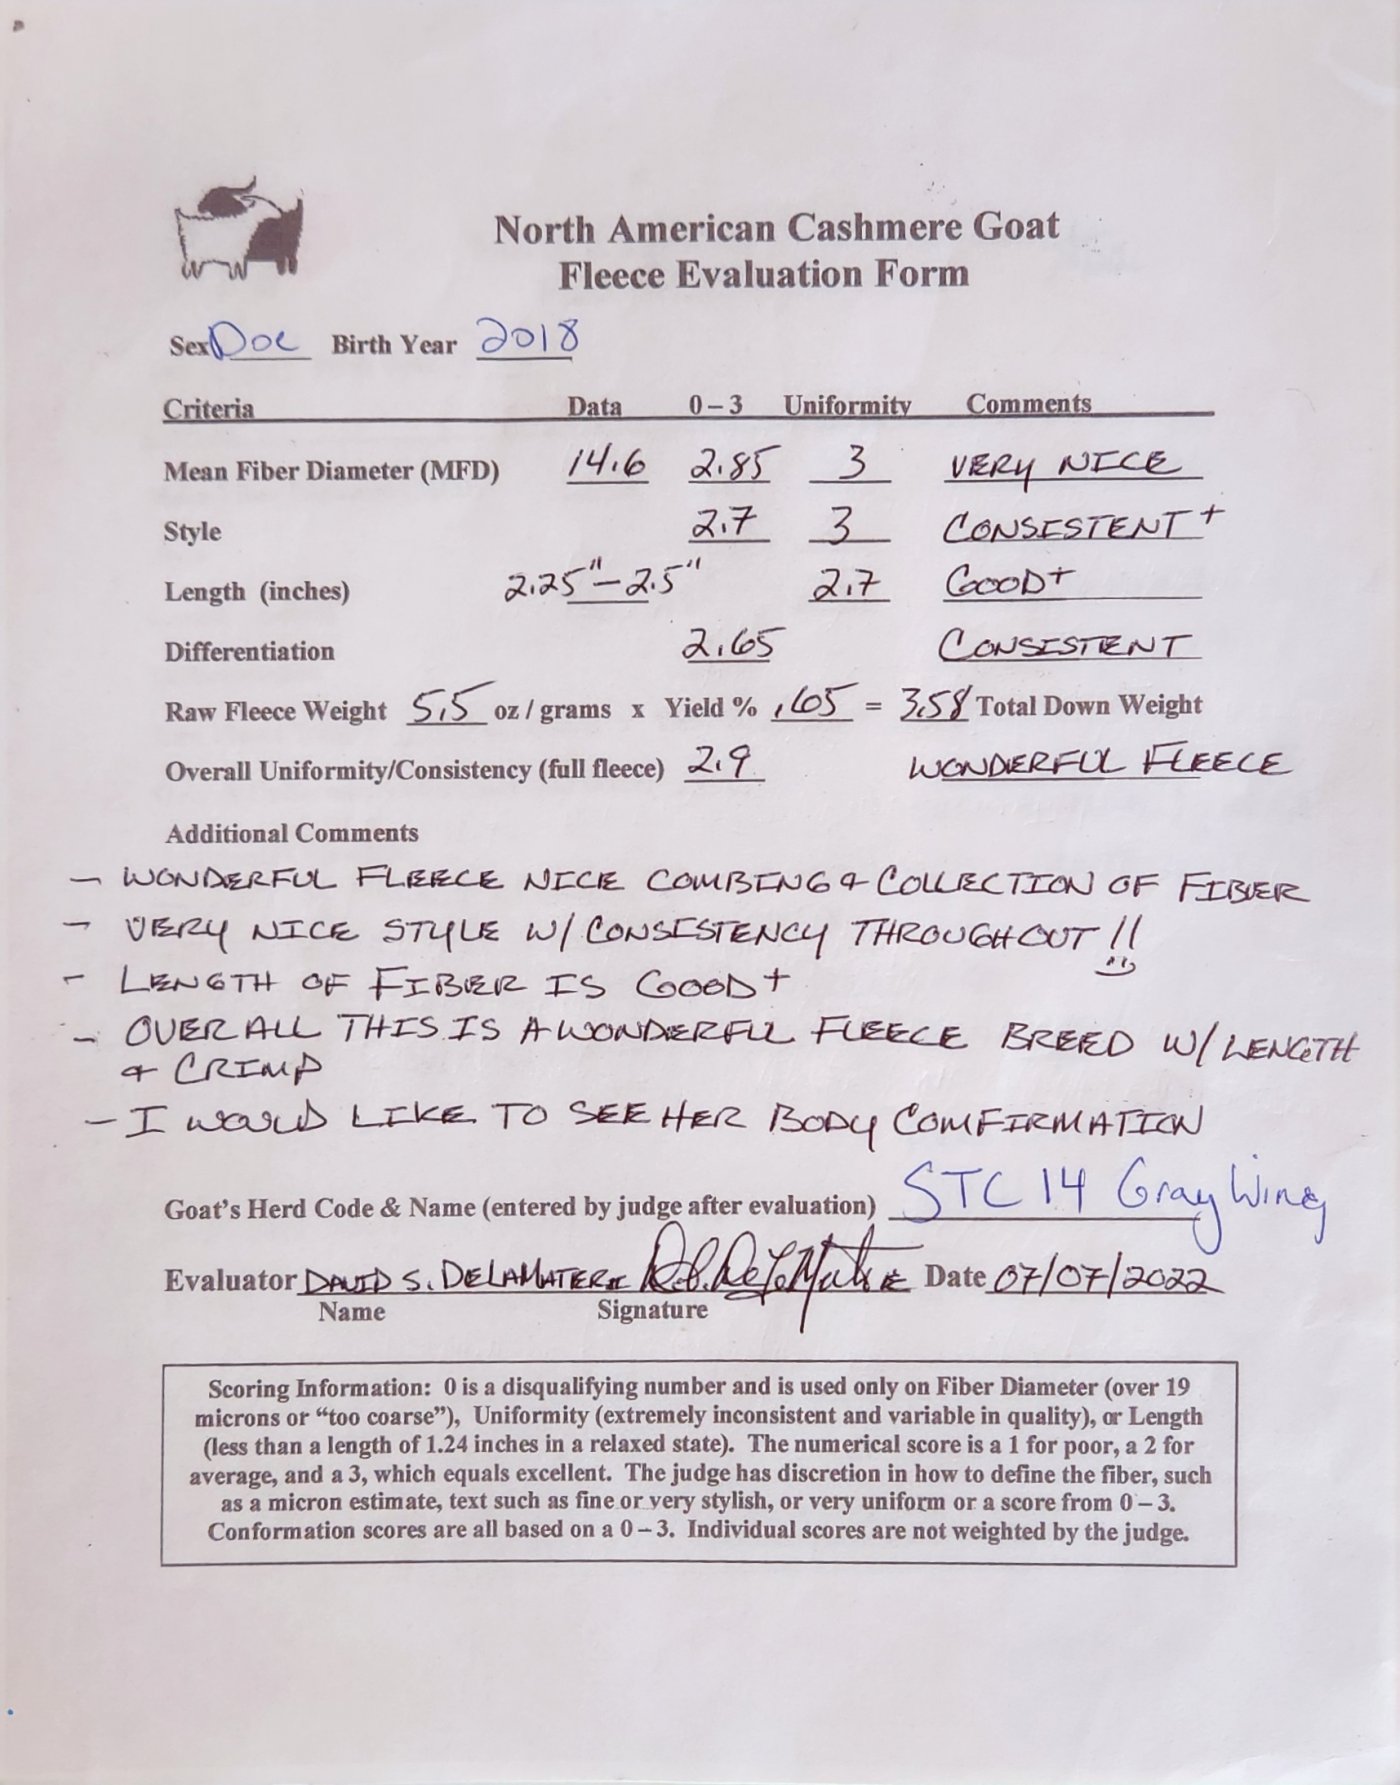 North American Cashmere Goat
Fleece Evaluation Form
Sex Doe Birth Year 2018
Criteria Data 0 – 3 Uniformity Comments
Mean Fiber Diameter (MFD) 14.6 2.85 3 VERY NICE
Style 2.7 3 CONSISTENT +
Length (inches) 2.25" – 2.5" 2.7 GOOD+
Differentiation 2.65 CONSISTENT
Raw Fleece Weight 5.5 oz / grams x Yield % .65 = 3.58 Total Down Weight
Overall Uniformity/Consistency (full fleece) 2.9 WONDERFUL FLEECE
Additional Comments
– WONDERFUL FLEECE NICE COMBING & COLLECTION OF FIBER
– VERY NICE STYLE W/ CONSISTENCY THROUGHOUT!!
– LENGTH OF FIBER IS GOOD+
– OVERALL THIS IS A WONDERFUL FLEECE BREED W/ LENGTH
& CRIMP
– I WOULD LIKE TO SEE HER BODY COMFIRMATION
Goat's Herd Code & Name (entered by judge after evaluation) STC 14 Gray Wing
Evaluator DAVID S. DELAMATER II Date 07/07/2022
Name Signature
Scoring Information: 0 is a disqualifying number and is used only on Fiber Diameter (over 19
microns or "too coarse"), Uniformity (extremely inconsistent and variable in quality), or Length
(less than a length of 1.24 inches in a relaxed state). The numerical score is a 1 for poor, a 2 for
average, and a 3, which equals excellent. The judge has discretion in how to define the fiber, such
as a micron estimate, text such as fine or very stylish, or very uniform or a score from 0 – 3.
Conformation scores are all based on a 0 – 3. Individual scores are not weighted by the judge.